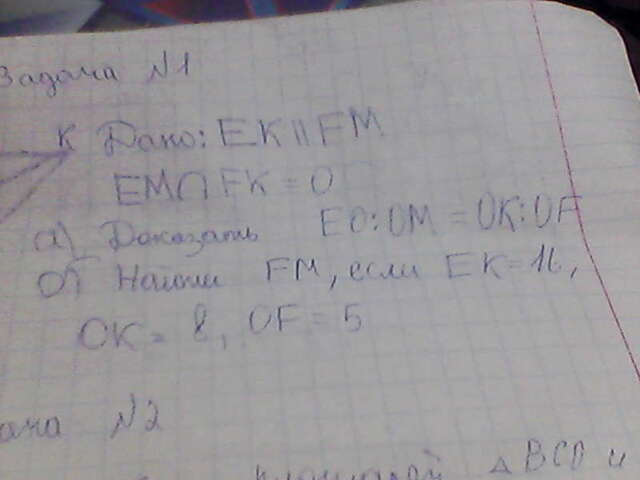 Задача №1
К Дано: EK || FM
EM∩FK = O
а) Доказать EO:OM = OK:OF
б) Найти FM, если EK=16,
OK = 8, OF = 5
№2
△BCD и